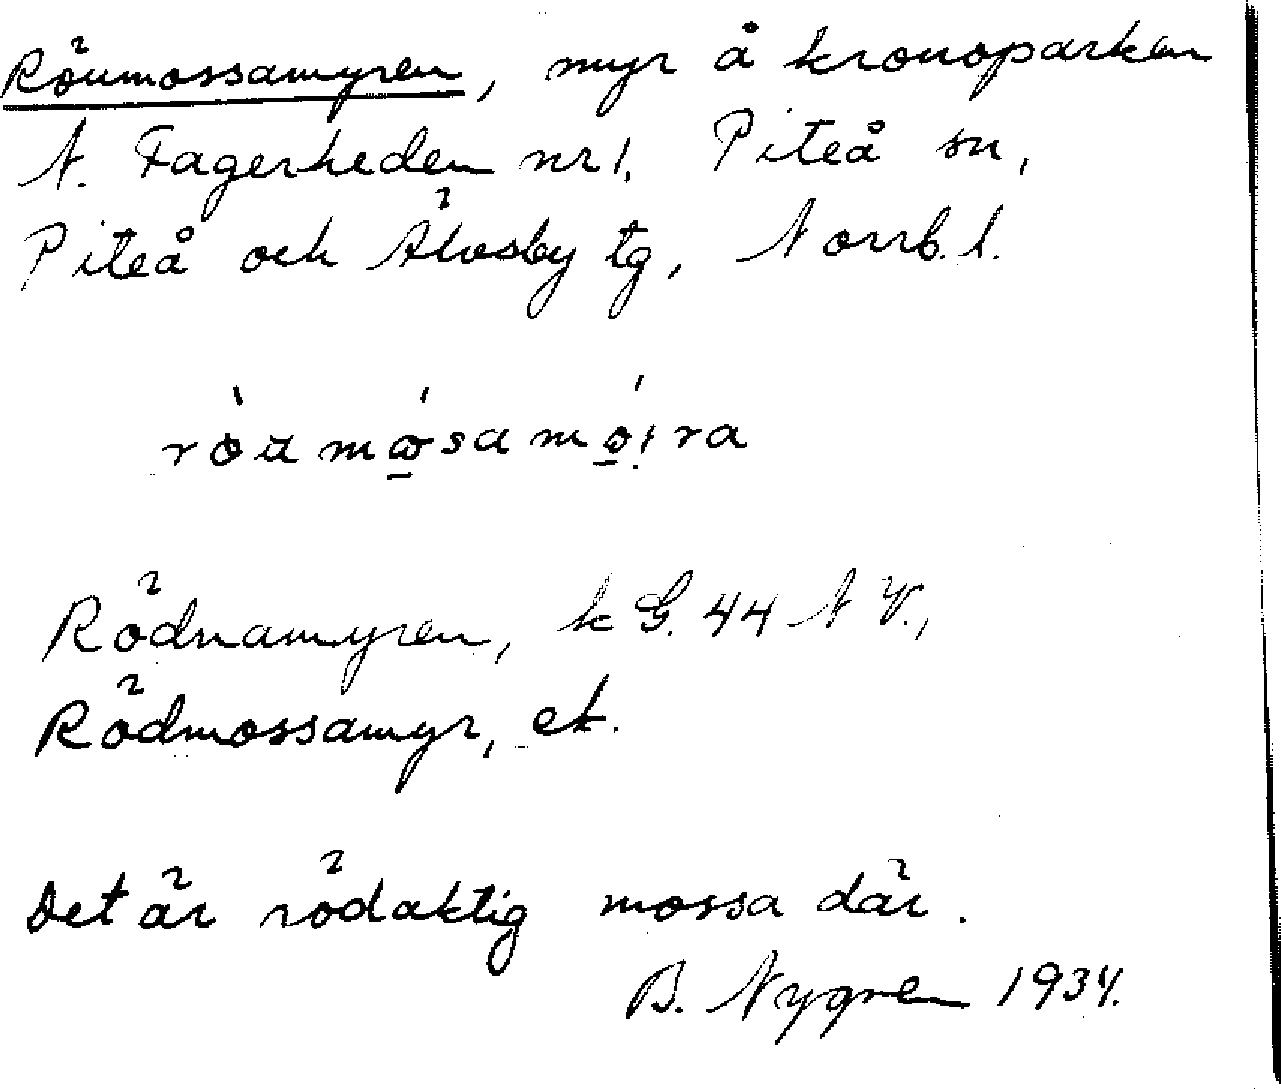 Röumossamyren, myr å kronoparken
N. Fagerheden nr 1. Piteå sn,
Piteå och Älvsby tg, Norrb. l.
Rödnamyren, k G. 44 N V.,
Rödmossamyr, ek.
Det är rödaktig mossa där.
B. Nygren 1934.